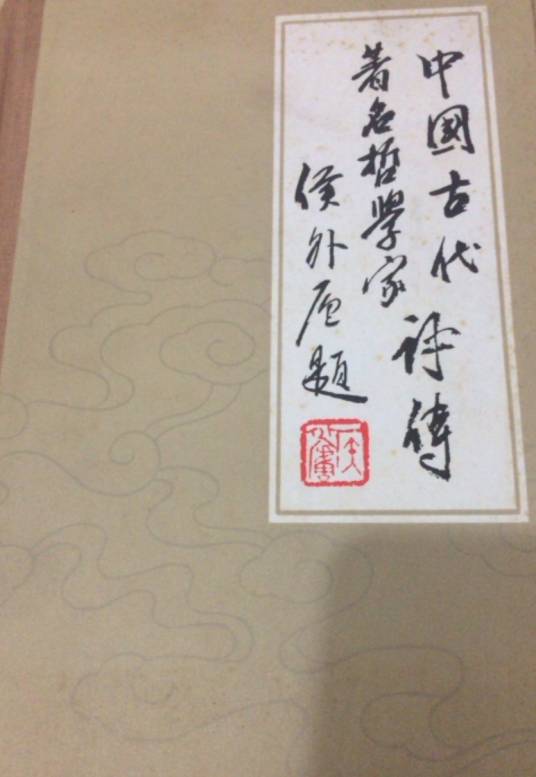 中國古代
著名哲學家
評傳
侯外廬題